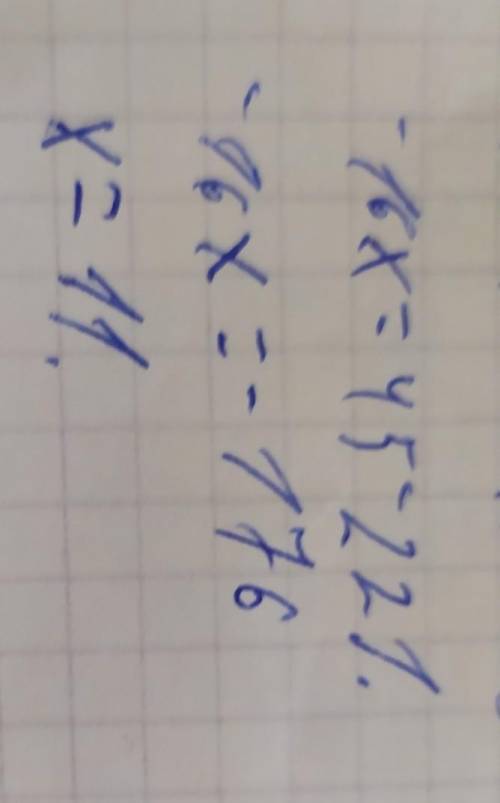 -16x = 45-221.
-16x = -176
x = 11.